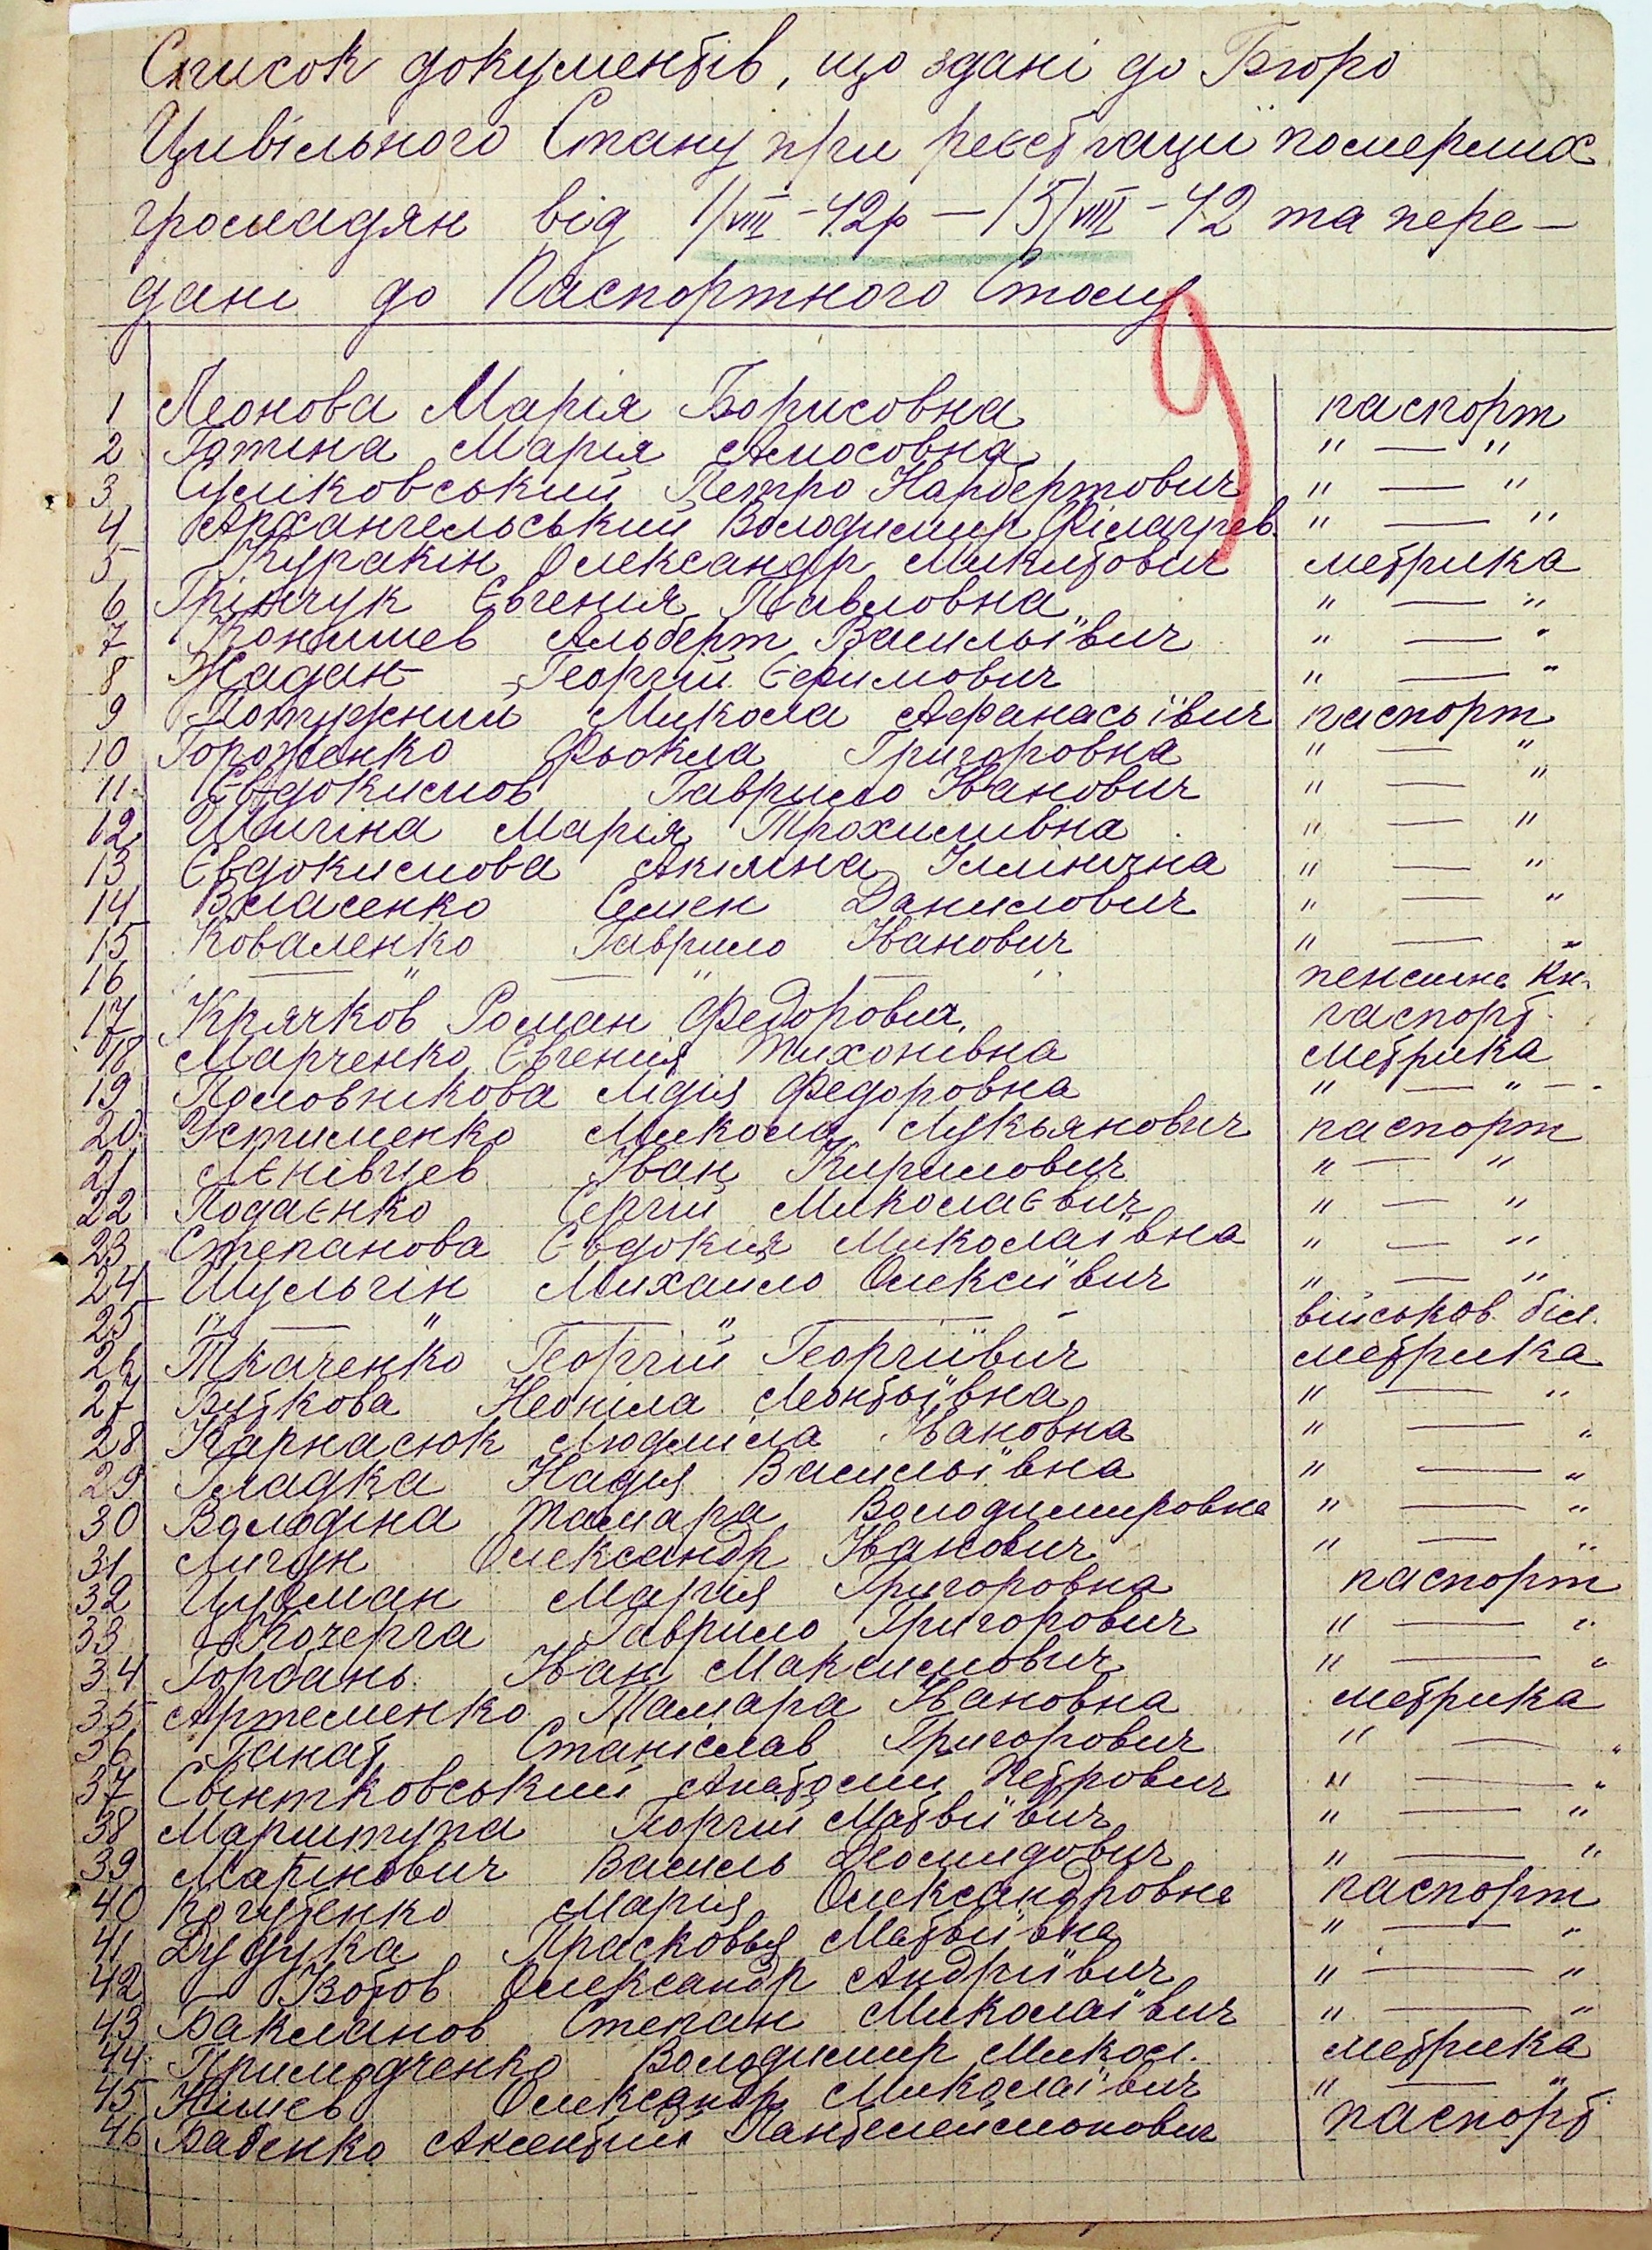 Список документів, що здані до Бюро
Цивільного Стану при реєстрації померших
громадян від 1/VIII-42р — 15/VIII-42 та пере-
дані до Паспортного Столу
9
1 Леонова Марія Борисовна паспорт
2 Марія Амосовна " — "
3 Петро Нарбертович " — "
4 Архангельський Володимир Філагрев. " — "
5 Куракін Олександр Микитович метрика
6 Грінчук Євгенія Павловна " — "
7 Конишев Альберт Васильївич " — "
8 Жадан Георгій Єфимович " — "
9 Потужний Микола Афанасьївич паспорт
10 Горощенко Фьокла Григоровна " — "
11 Євдокимов Гаврило Іванович " — "
12 Шичіна Марія Трохимивна " — "
13 Євдокимова Акіліна Іллінічна " — "
14 Власенко Семен Данилович " — "
15 Коваленко Гаврило Іванович " — "
16 " — " — " — " пенсийна кн.
17 Крячков Роман Федорович паспорт
18 Марченко Євгенія Тихонівна метрика
19 Половнікова Лідія Федоровна " — " —
20 Устименко Микола Лукьянович паспорт
21 Лєнівцев Іван Кирилович " — "
22 Подаєнко Сергій Миколаєвич " — "
23 Степанова Євдокия Миколаївна " — "
24 Шульгін Михайло Олексіївич " — "
25 " — " — " — військов. біл.
26 Ткаченко Георгій Георгіївич метрика
27 Буткова Неоніла Леонтьївна " — "
28 Карнасюк Людмила Івановна " — "
29 Гладка Надія Васильївна " — "
30 Володіна Тамара Володимировна " — "
31 Лигун Олександр Іванович " — "
32 Цудман Марія Григоровна паспорт
33 Кочерга Гаврило Григорович " — "
34 Горбань Іван Максимович " — "
35 Артеменко Тамара Івановна метрика
36 Ганат Станіслав Григорович " — "
37 Свинтковський Анатолий Петрович " — "
38 Марштупа Георгій Матвіївич " — "
39 Мартінович Василь Деомидович " — "
40 Когутенко Мария Олександровна паспорт
41 Дудука Прасковья Матвіївна " — "
42 Вотов Олександр Андріївич " — "
43 Бакланов Степан Миколаївич " — "
44 Примодченко Володимир Микол. метрика
45 Нілиєв Олександр Миколаївич " — "
46 Бабенко Аксентий Пантелеймонович паспорт